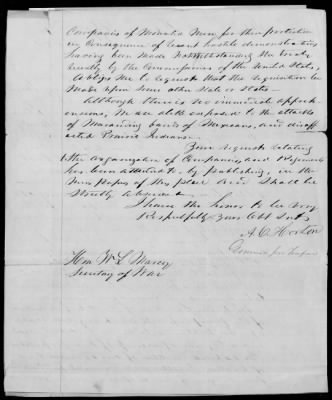 Companies of Mounted Men for their protection
in Consequence of recent hostile demonstrations
having been made notwithstanding the treaty
by the Commissioners of the United States,
obliges me to request that the requisition be
made upon some other State or States—
Although there is no immediate appreh-
ensions, we are still exposed to the attacks
of Marauding bands of Mexicans, and disaff-
ected Prairie Indians—
Your request relating
to the organization of Companies, and Regiments
has been attended to, by publishing, in the
News Papers of this place and shall be
Strictly observed
I have the honor to be very
Respectfully Your Obt Servt
A. C. Horton
Hon W. L. Marcy
Secretary of War